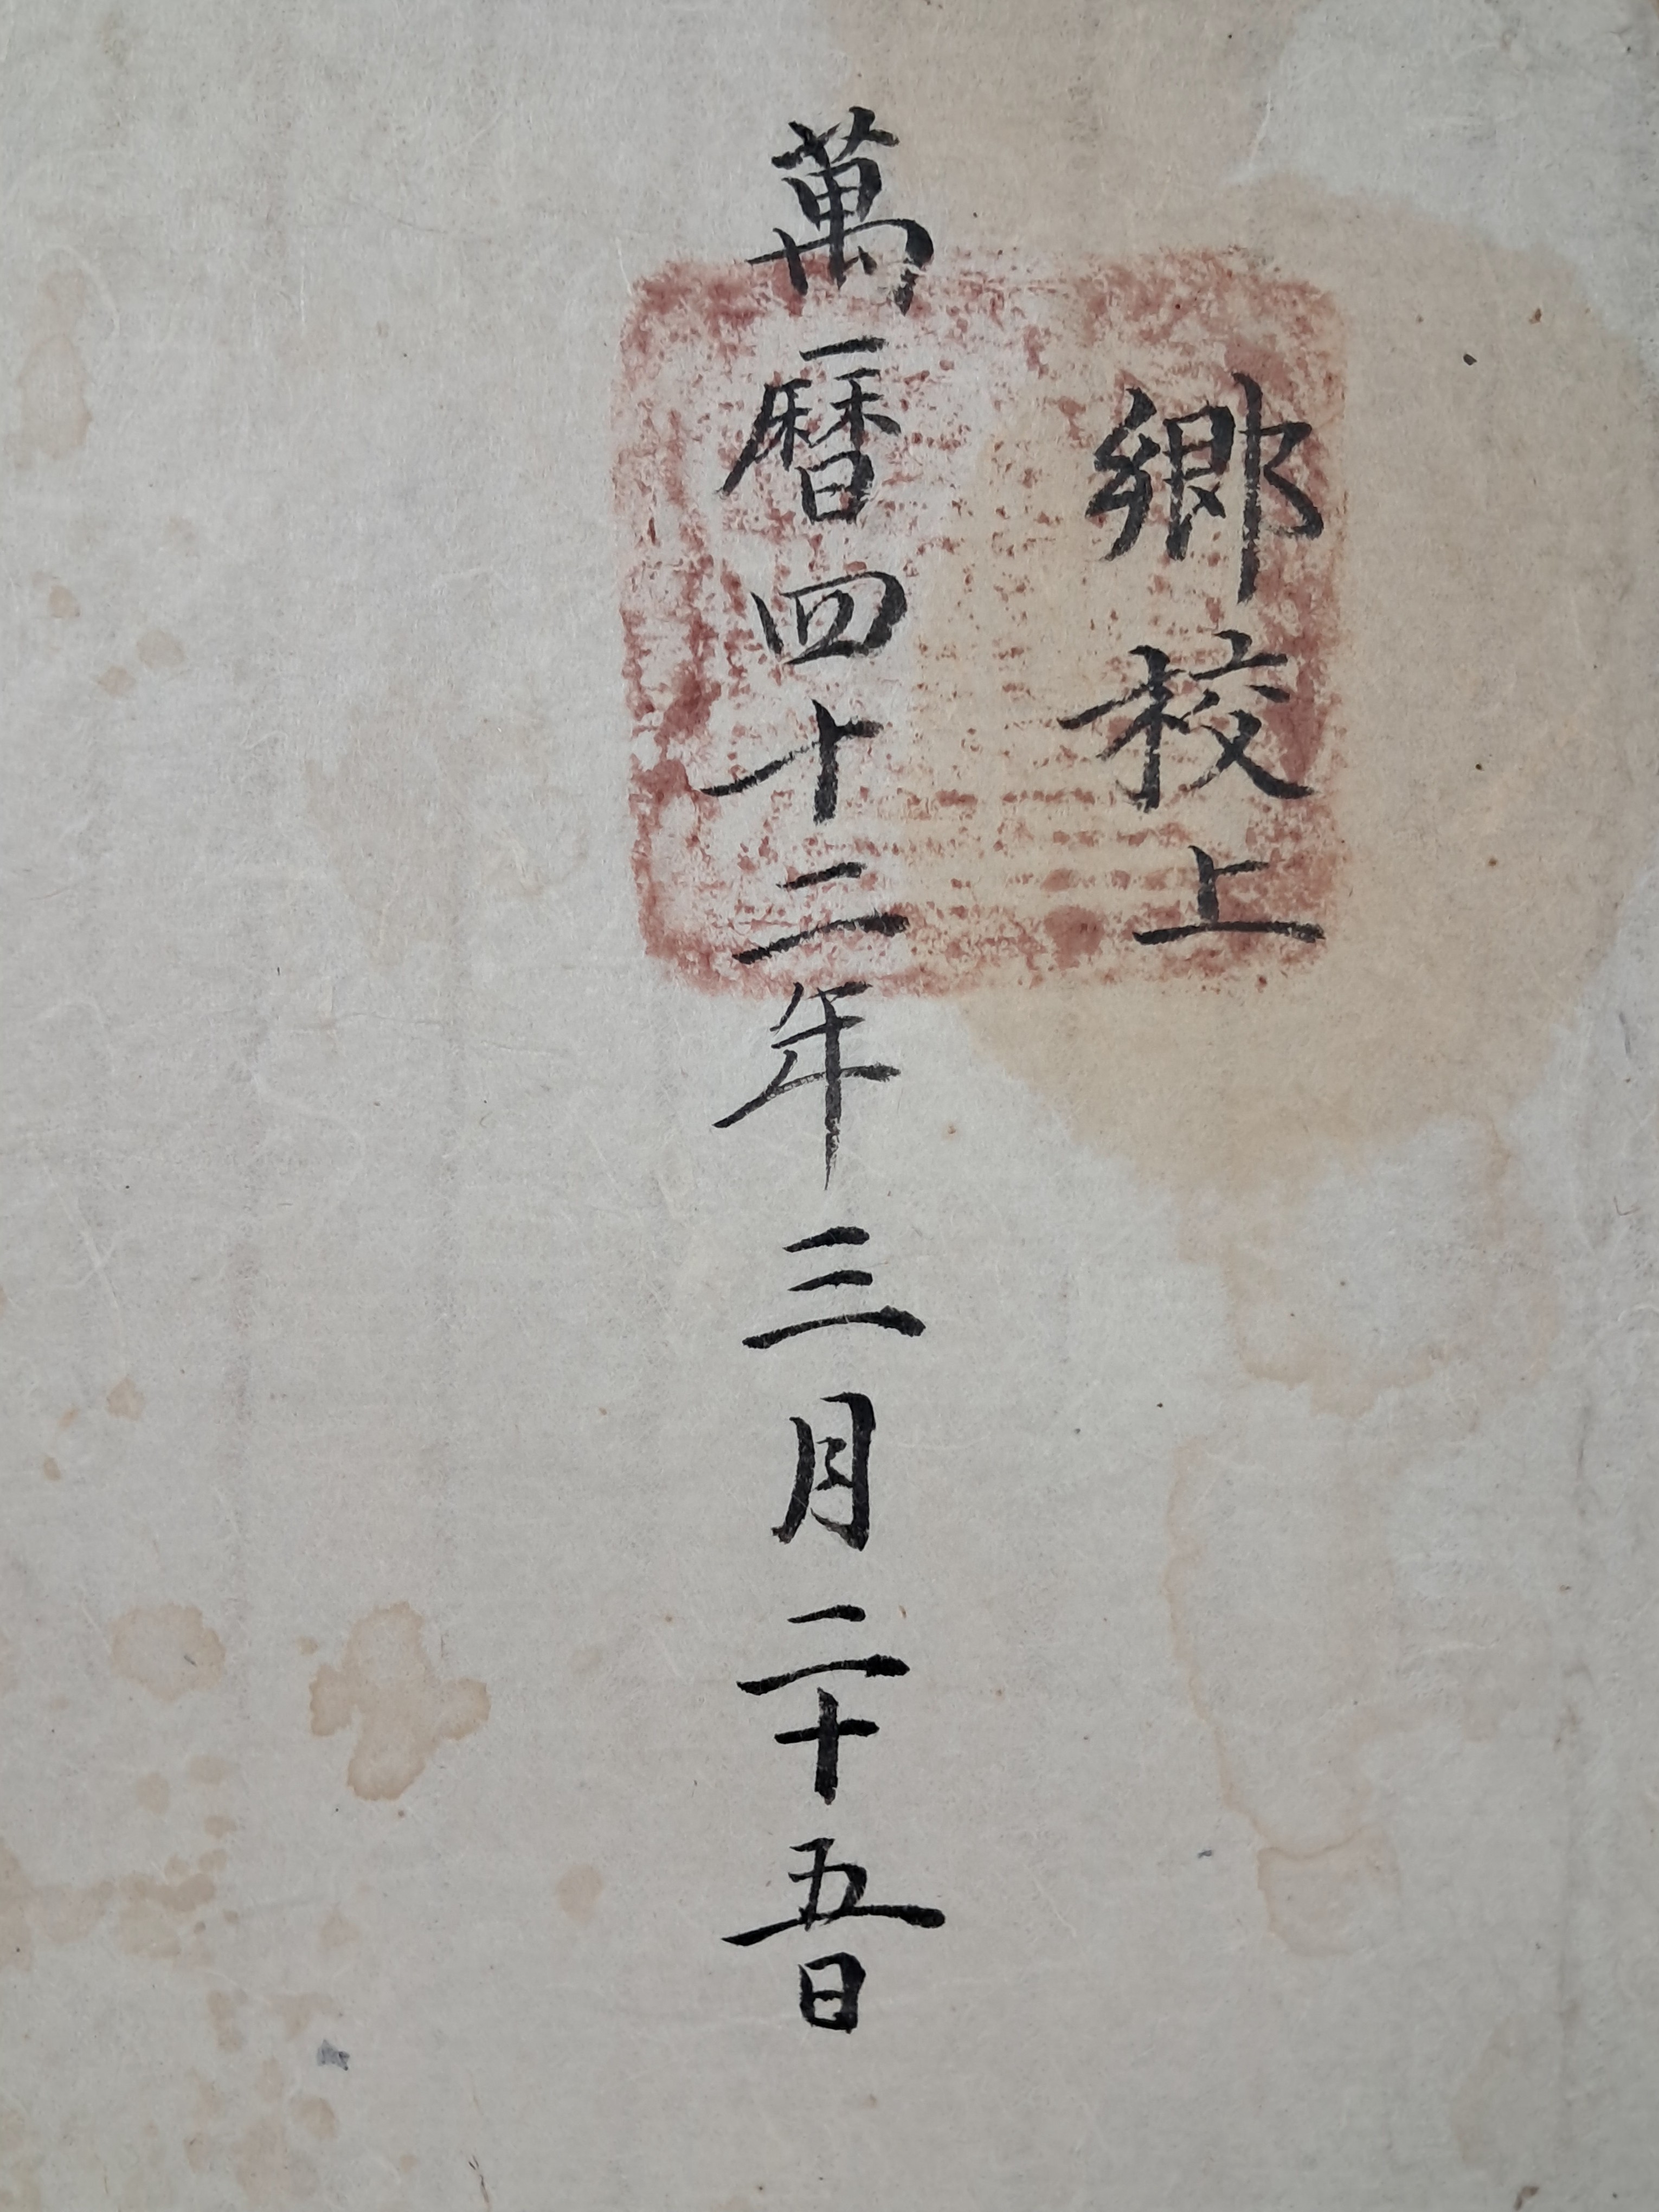 鄕校上
萬曆四十二年三月二十五日